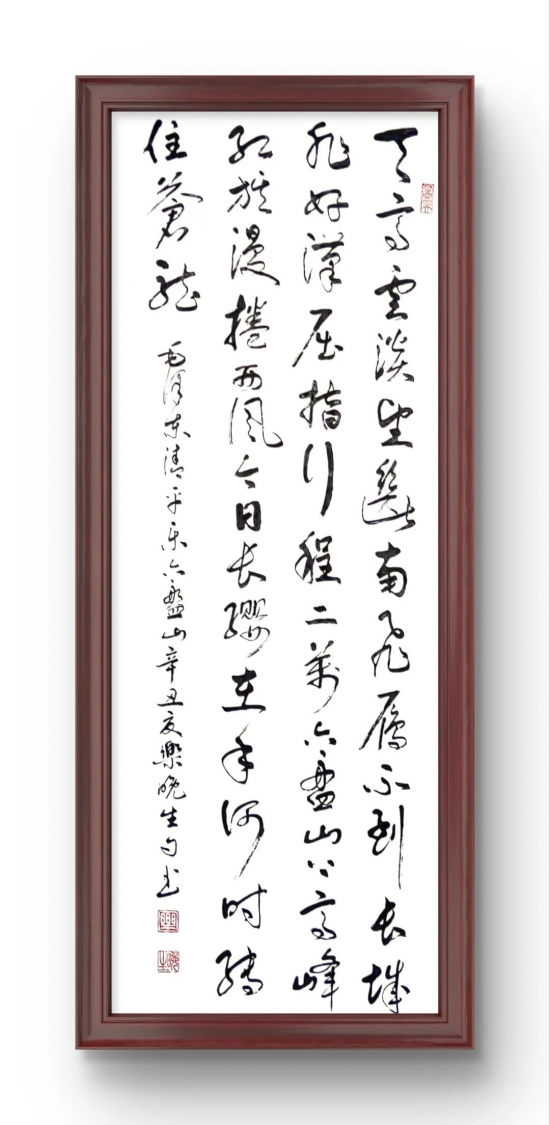 天高雲淡望斷南飛雁不到长城
非好漢屈指行程二萬六盤山上高峰
红旗漫捲西風今日长纓在手何时縛
住蒼龍
毛澤东清平乐六盤山辛丑夏樂晚生书